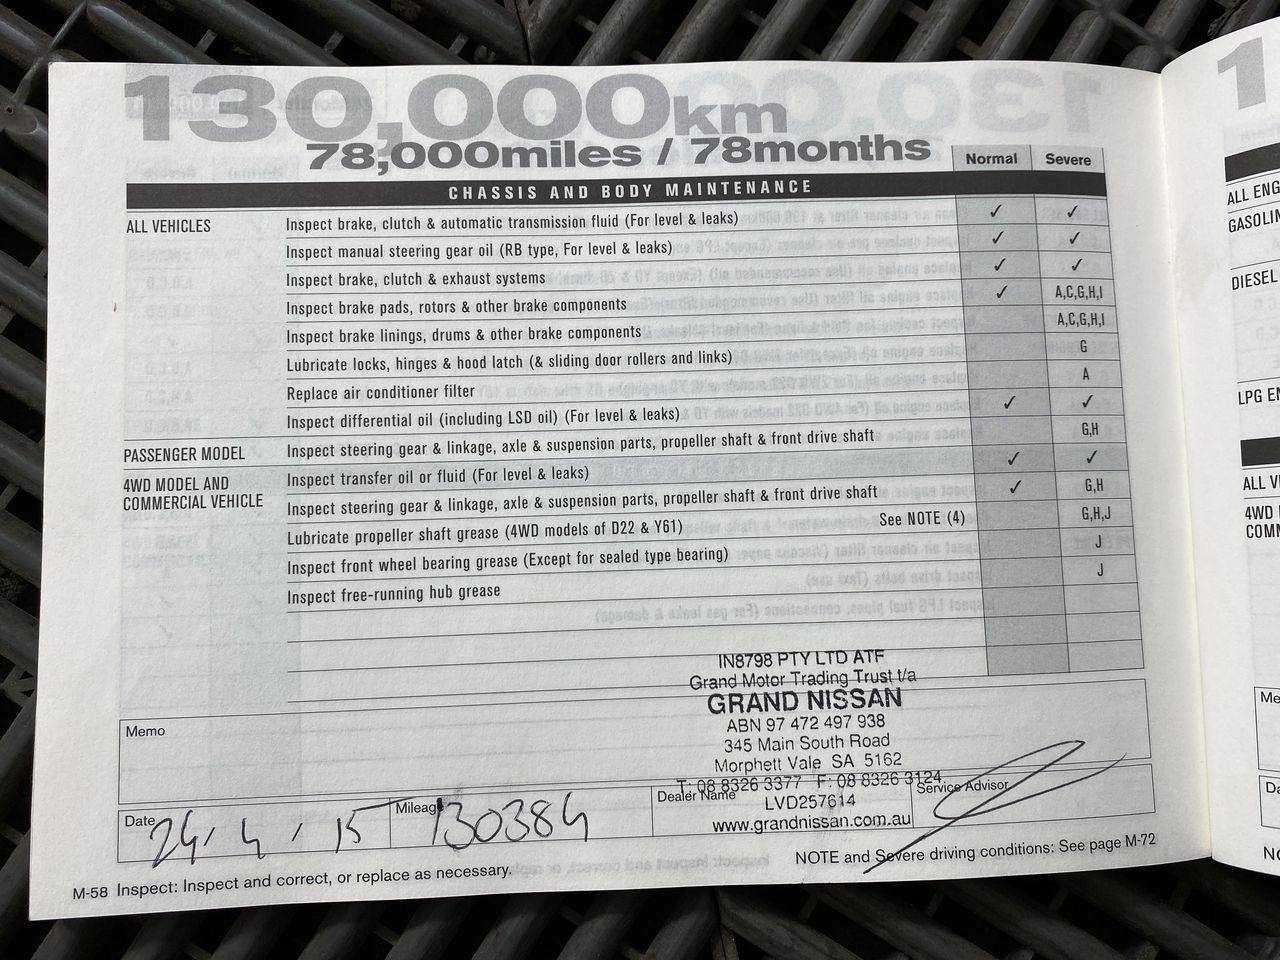 130,000km
78,000miles / 78months
Normal Severe
CHASSIS AND BODY MAINTENANCE
ALL VEHICLES Inspect brake, clutch & automatic transmission fluid (For level & leaks) ✓ ✓
Inspect manual steering gear oil (RB type, For level & leaks) ✓ ✓
Inspect brake, clutch & exhaust systems ✓ ✓
Inspect brake pads, rotors & other brake components ✓ A,C,G,H,I
Inspect brake linings, drums & other brake components A,C,G,H,I
Lubricate locks, hinges & hood latch (& sliding door rollers and links) G
Replace air conditioner filter A
Inspect differential oil (including LSD oil) (For level & leaks) ✓ ✓
PASSENGER MODEL Inspect steering gear & linkage, axle & suspension parts, propeller shaft & front drive shaft G,H
4WD MODEL AND Inspect transfer oil or fluid (For level & leaks) ✓ ✓
COMMERCIAL VEHICLE Inspect steering gear & linkage, axle & suspension parts, propeller shaft & front drive shaft ✓ G,H
Lubricate propeller shaft grease (4WD models of D22 & Y61) See NOTE (4) G,H,J
Inspect front wheel bearing grease (Except for sealed type bearing) J
Inspect free-running hub grease J
IN8798 PTY LTD ATF
Grand Motor Trading Trust t/a
GRAND NISSAN
ABN 97 472 497 938
345 Main South Road
Morphett Vale SA 5162
T: 08 8326 3377 F: 08 8326 3124
LVD257614
www.grandnissan.com.au
Memo
Date 24/4/15
Mileage 130384
Dealer Name
Service Advisor
M-58 Inspect: Inspect and correct, or replace as necessary.
NOTE and Severe driving conditions: See page M-72
1
ALL ENG
GASOLIN
DIESEL
LPG EN
ALL V
4WD
COMM
Me
Da